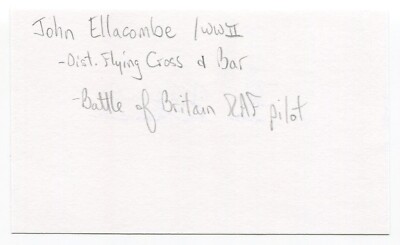 John Ellacombe /WWII
-Dist. Flying Cross & Bar
-Battle of Britain RAF pilot